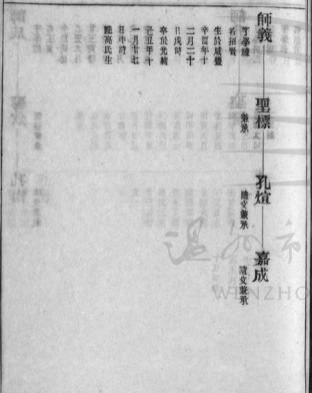 師義
字學禮
名招賢
生於咸豐
辛酉年十
二月二十
日戌時
卒於光緒
己丑年十
一月十七
日申時
娶高氏生
聖標
承
孔煊
隨父兼承
嘉成
隨父兼承
溫州市
WENZHO